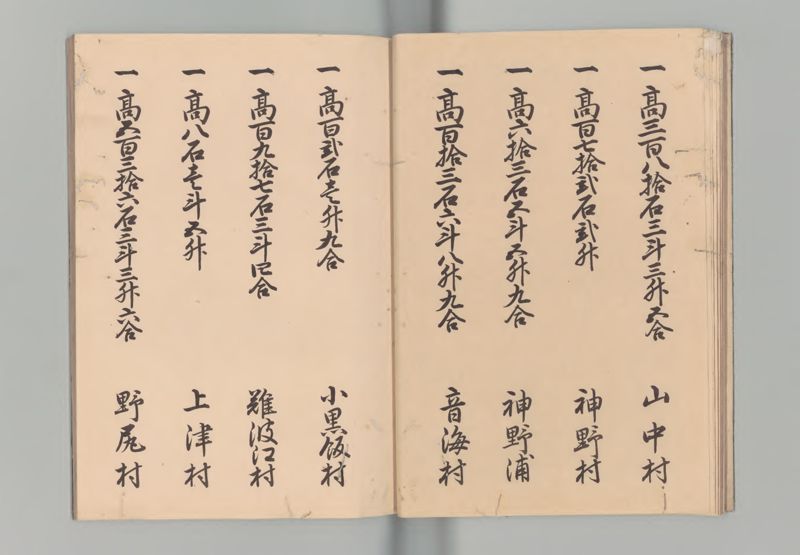 一高三百八拾石三斗三升五合 山中村
一高百七拾弐石弐升 神野村
一高六拾三石五斗五升九合 神野浦
一高百拾三石六斗八升九合 音海村
一高百弐石壱升九合 小黒飯村
一高百九拾七石三斗四合 難波江村
一高八石壱斗五升 上津村
一高五百三拾六石三斗三升六合 野尻村